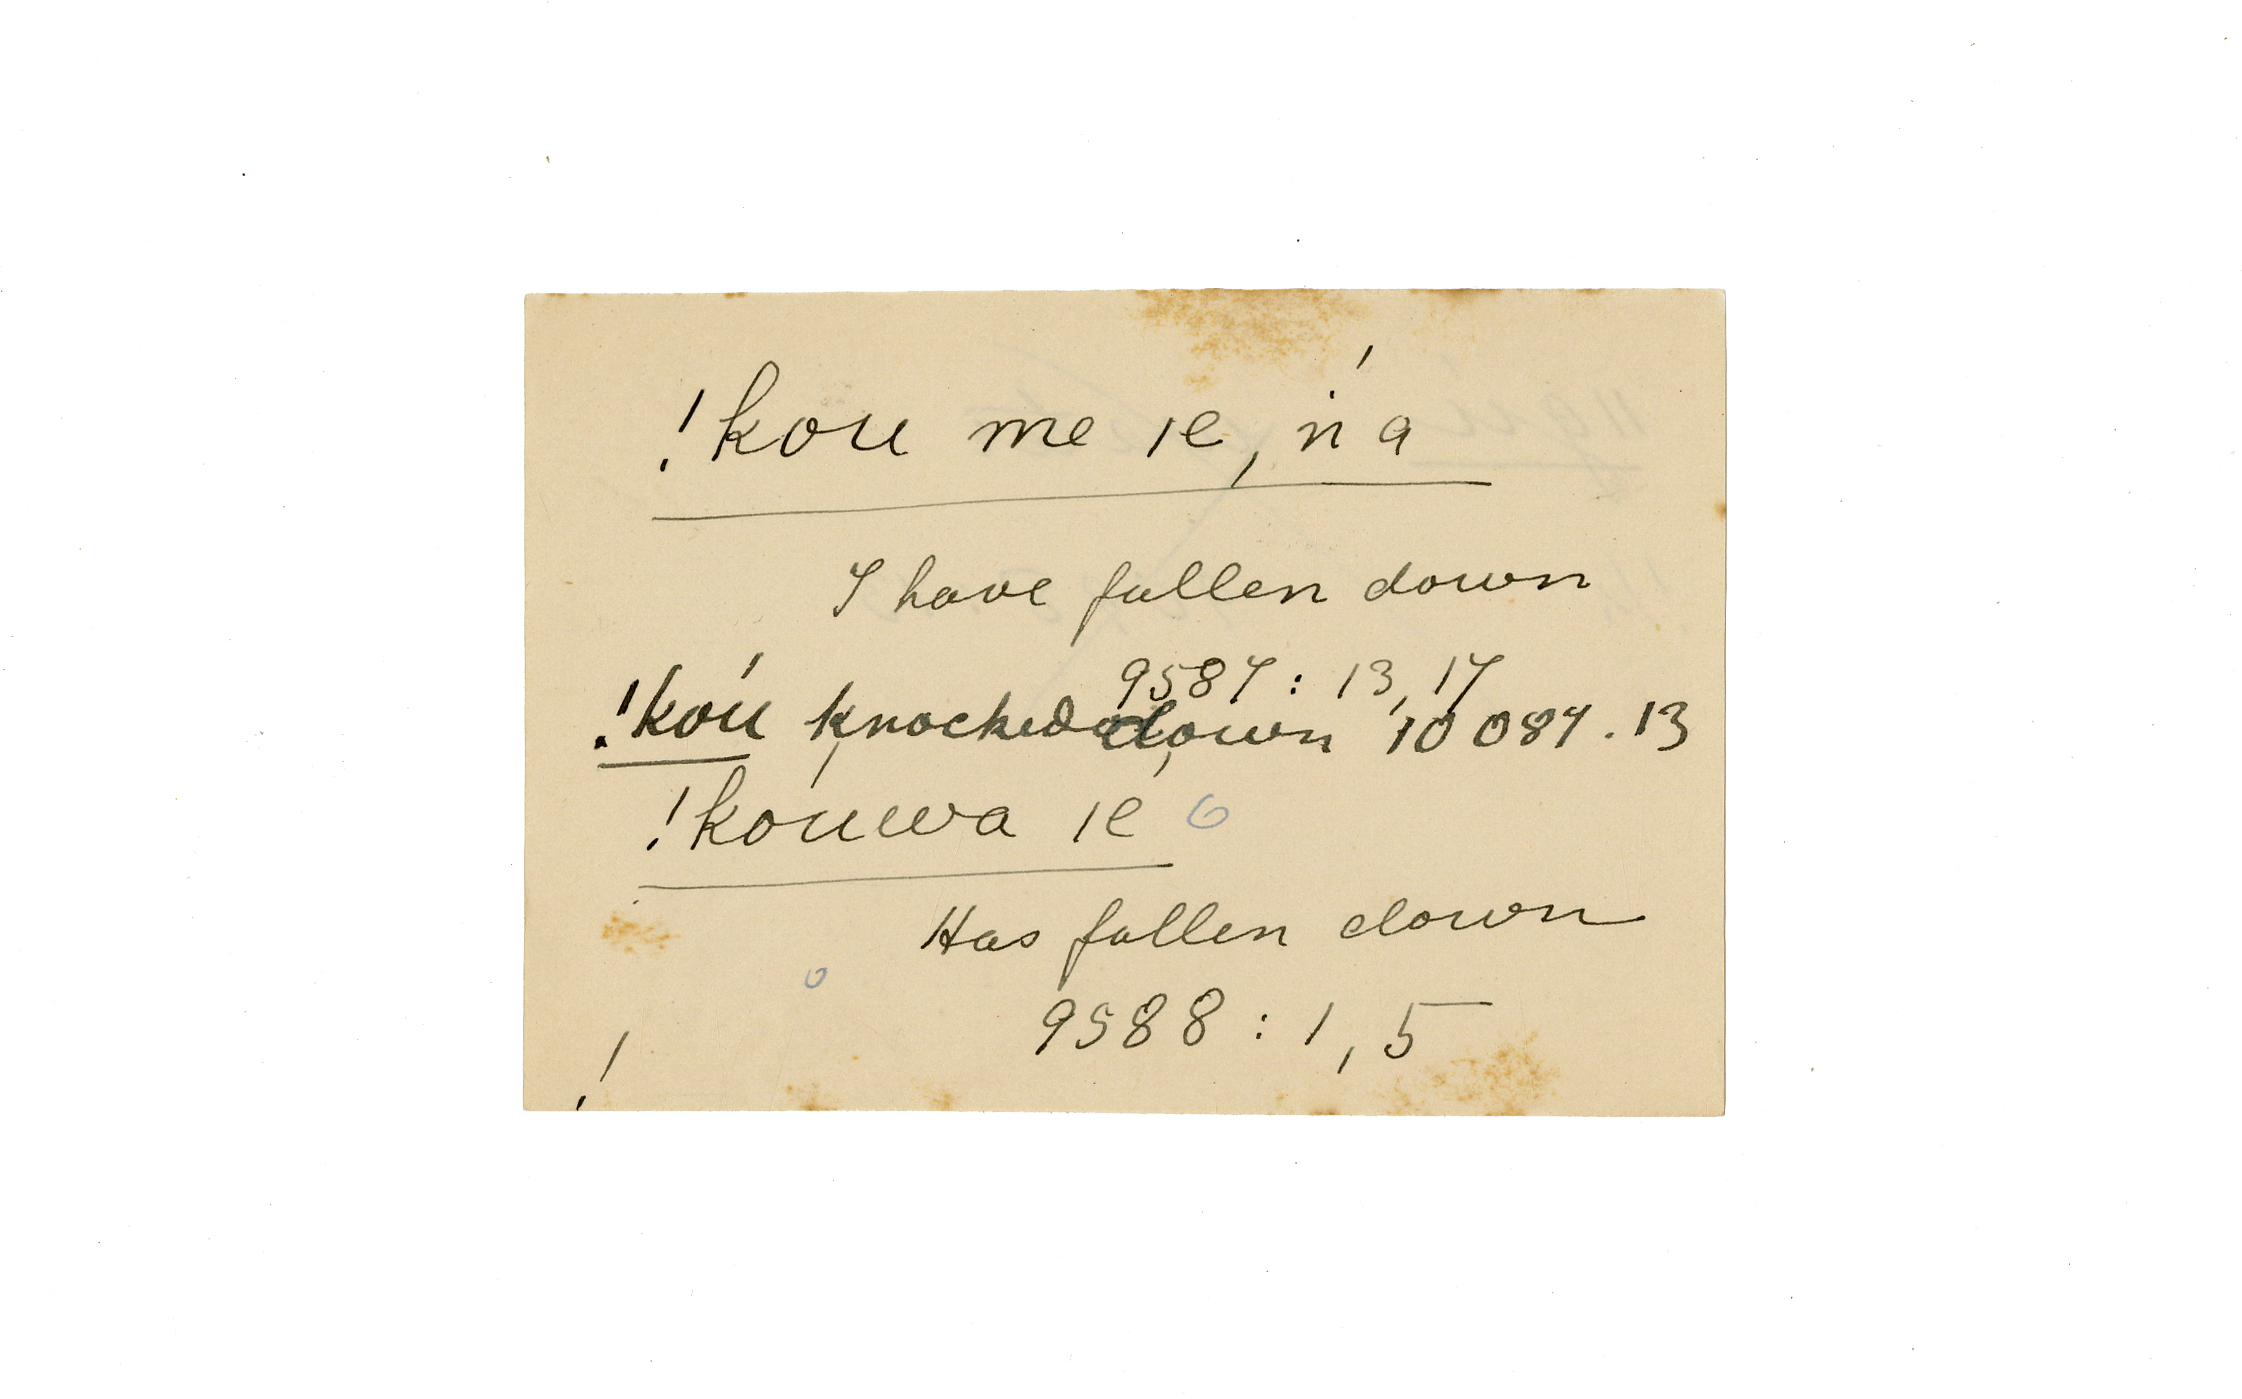 !kou me ıe, ṅ́a
I have fallen down
9587 : 13, 17
!kóu knocked down 10 087 . 13
!kouwa ıe
Has fallen down
9588 : 1, 5
!